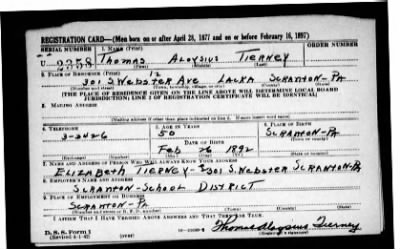 REGISTRATION CARD—(Men born on or after April 28, 1877 and on or before February 16, 1897)
SERIAL NUMBER 1. NAME (Print) ORDER NUMBER
U THOMAS ALOYSIUS TIERNEY
(First) (Middle) (Last)
2. PLACE OF RESIDENCE (Print)
301 S. WEBSTER AVE LACKA SCRANTON-PA
(Number and street) (Town, township, village, or city) (County) (State)
[THE PLACE OF RESIDENCE GIVEN ON THE LINE ABOVE WILL DETERMINE LOCAL BOARD
JURISDICTION; LINE 2 OF REGISTRATION CERTIFICATE WILL BE IDENTICAL]
3. MAILING ADDRESS
[Mailing address if other than place indicated on line 2. If same insert word same]
4. TELEPHONE 5. AGE IN YEARS 6. PLACE OF BIRTH
3-2426 50 SCRANTON-PA
DATE OF BIRTH
FEB 26 1892
(Exchange) (Number) (Mo.) (Day) (Yr.) (State or country)
7. NAME AND ADDRESS OF PERSON WHO WILL ALWAYS KNOW YOUR ADDRESS
ELIZABETH TIERNEY-301 S. WEBSTER SCRANTON PA
8. EMPLOYER'S NAME AND ADDRESS
SCRANTON-SCHOOL DISTRICT
9. PLACE OF EMPLOYMENT OR BUSINESS
SCRANTON-PA
(Number and street or R. F. D. number) (Town) (County) (State)
I AFFIRM THAT I HAVE VERIFIED ABOVE ANSWERS AND THAT THEY ARE TRUE.
D. S. S. Form 1
(Revised 4-1-42) (over) Thomas Aloysius Tierney